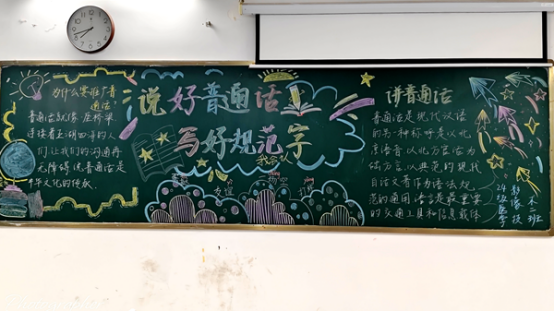 为什么要推广普
通话?
普通话就像座桥梁
连接着五湖四海的人
们,让我们的沟通再
无障碍,说普通话是
中华文化的传承.
说好普通话
写好规范字
友谊
讲普通话
普通话是现代汉语
的另一种称呼是以北
京语音以北方官话为
础方言以典范的现代
白话文著作为语法规
范的通用语言是最重要
的交通工具和信息载体
24级医学
影像技
术二班